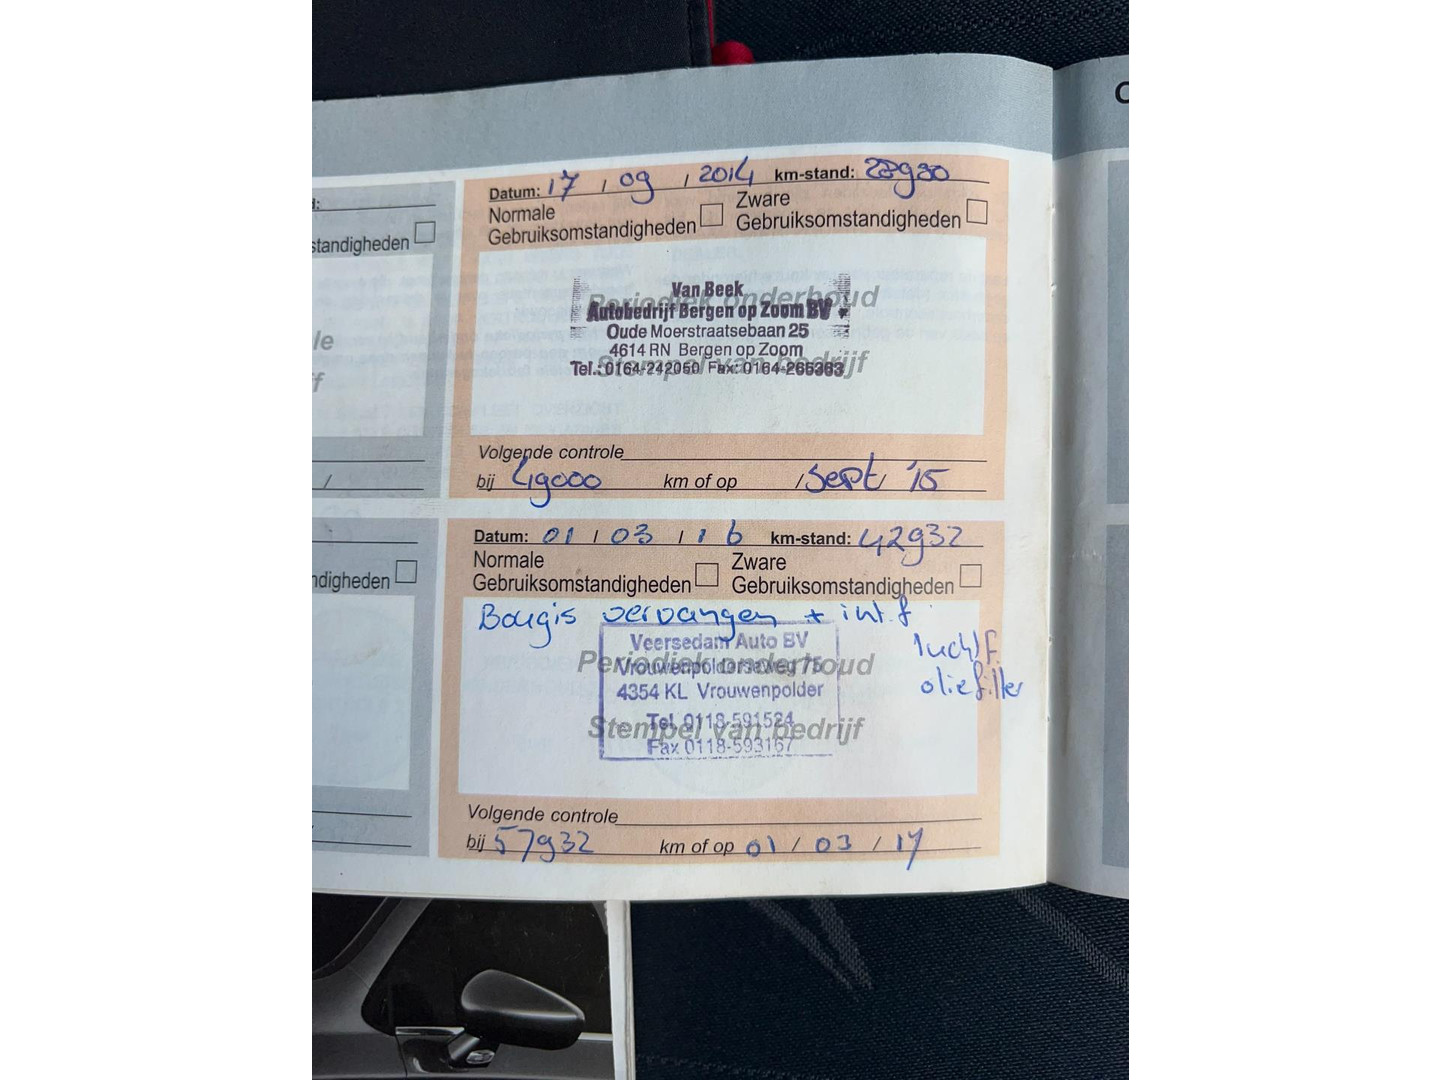 C
Datum: 17 / 09 / 2014 km-stand: 28980
Normale
Gebruiksomstandigheden
Zware
Gebruiksomstandigheden
Periodiek onderhoud
Stempel van bedrijf
Van Beek
Autobedrijf Bergen op Zoom BV
Oude Moerstraatsebaan 25
4614 RN Bergen op Zoom
Tel.: 0164-242050 Fax: 0164-266363
Volgende controle
bij 49000 km of op / Sept '15
Datum: 01 / 03 / 16 km-stand: 42932
Normale
Gebruiksomstandigheden
Zware
Gebruiksomstandigheden
Bougis vervangen + int.f.
luchtf.
oliefilter
Periodiek onderhoud
Stempel van bedrijf
Veersedam Auto BV
Vrouwenpolderseweg 75
4354 KL Vrouwenpolder
Tel. 0118-591524
Fax 0118-593167
Volgende controle
bij 57932 km of op 01 / 03 / 17
standigheden
le
f
/
ndigheden